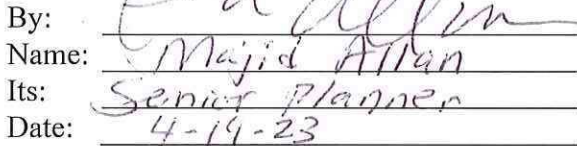 By:
Name: Majid Allan
Its: Senior Planner
Date: 4-19-23